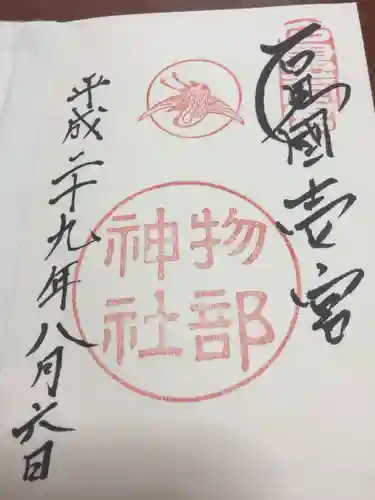 石見國壱宮
物部
神社
平成二十九年八月六日